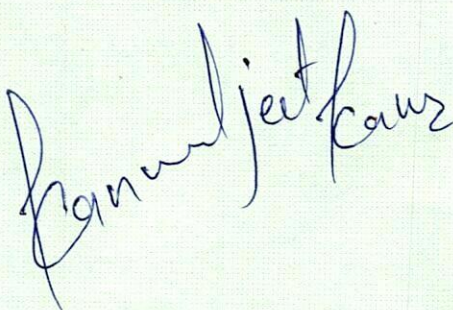 Kanwaljeet Kaur